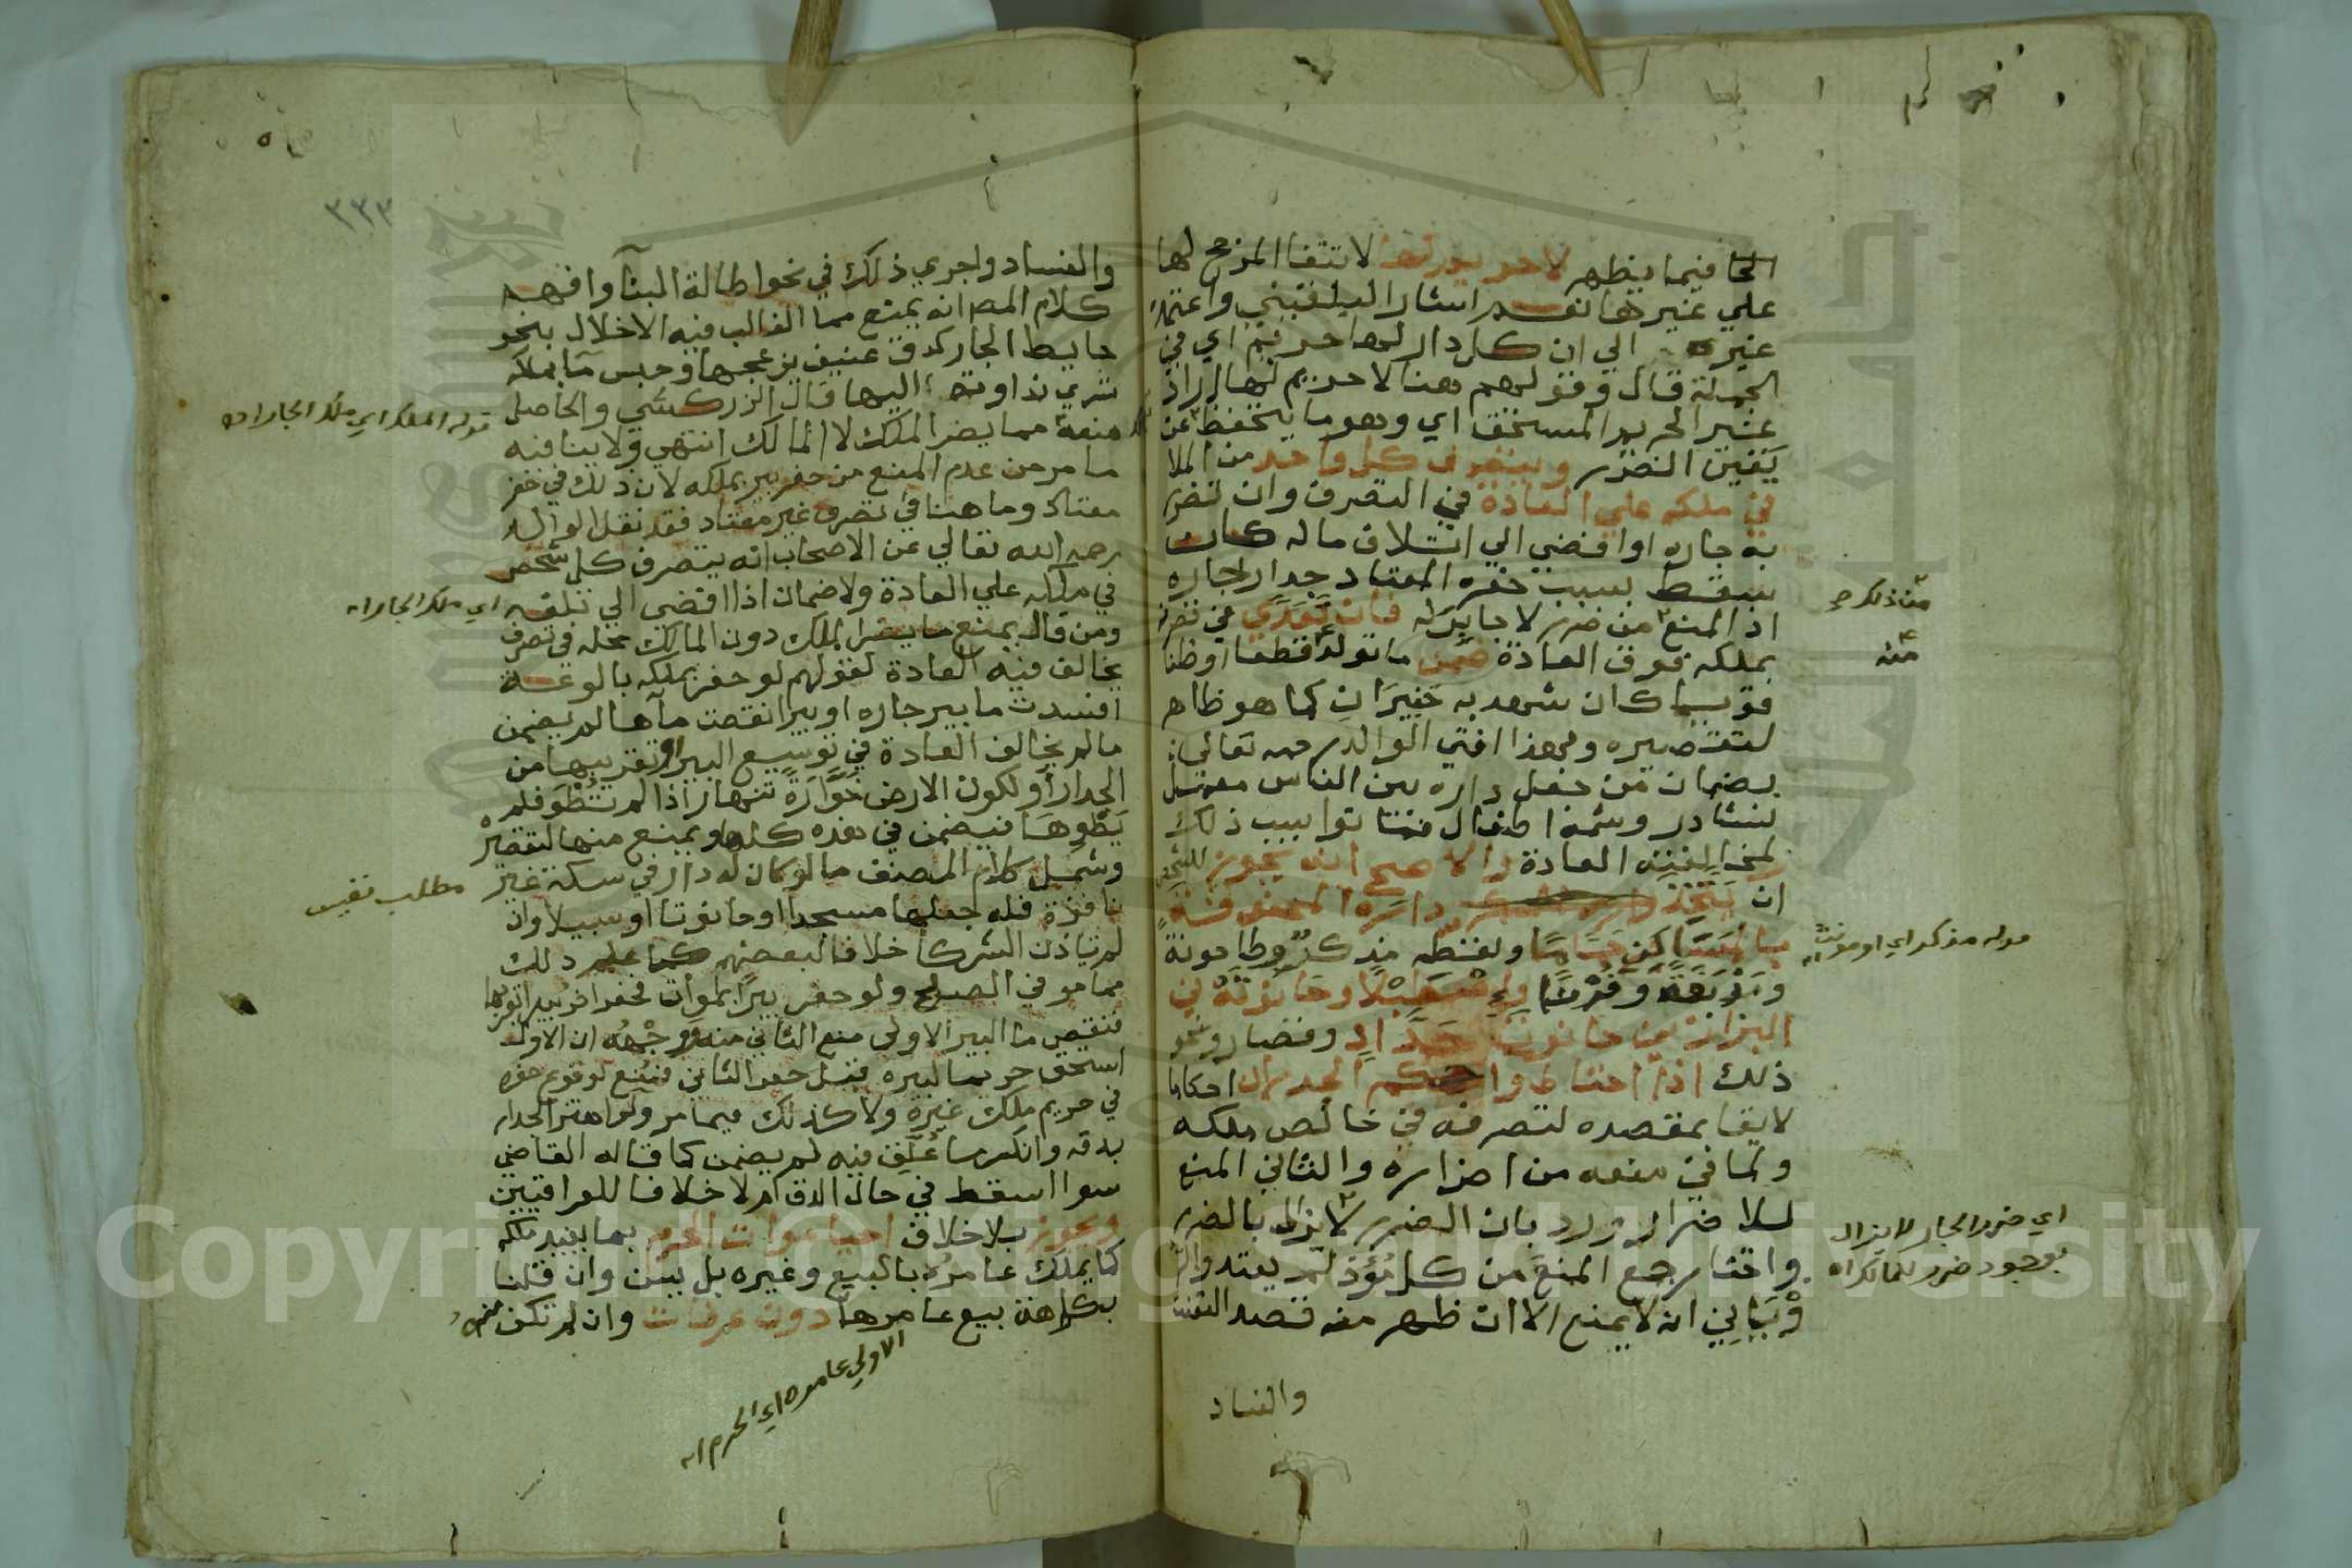 الحافيما يظهر لا حريم لها لانتفا المرجح لها
علي غيرها نعم اشار البلقيني واعتمده
غيره الي ان كل دار لها حريم اي في
الجملة قال وقولهم هنا لا حريم لها اراد
غير الحريم المستحق اي وهو ما يتحفظ عن
يقين الضرر ويتصرف كل واحد من الملا
في ملكه علي العادة في التصرف وان تضرر
به جاره او افضي الي اتلاف ماله كان
سقط بسبب حفره المعتاد جدار جاره
اذ المنع من ضرر لا جابر له فان تعدي في تصرفه
بملكه فوق العادة ضمن ما تولد قطعا او ظنا
قويا كان شهد به خبيران كما هو ظاهر
لتقصيره ولهذا افتي الوالد رحمه تعالي
بضمان من جعل داره بين الناس معمل
نشادر وشمه اطفال فماتوا بسبب ذلك
لمخالفته العادة والاصح انه يجوز للشخص
ان يتخذ داره المحفوفة
بمساكن حماما ولفظه مذكر وطاحونة
ومدبغة وفرنا واصطبلا وحانوته في
البزازين حانوت حداد وقصار ونحو
ذلك اذا احتاط واحكم الجدران احكاما
لايقا بمقصده لتصرفه في خالص ملكه
ولما في منعه من اضراره والثاني المنع
للاضرار ورد بان الضرر لا يزال بالضرر
واختار جمع المنع من كل مؤذ لم يعتد والرو
وياني انه لا يمنع الا ان ظهر منه قصد التعنت
والفساد
من ذلك صح
منه
قوله مذكر اي او مونث اه
اي ضرر الجار لا يزال
بوجود ضرر للمالك اه
٣٣٣
والفساد واجري ذلك في نحو اطالة البنا وافهم
كلام المص انه يمنع مما الغالب فيه الاخلال بنحو
حايط الجار كدق عنيف يزعجها وحبس ما بملكه
تسري نداوته اليها قال الزركشي والحاصل
منعه مما يضر الملك لا المالك انتهي ولا ينافيه
ما مر من عدم المنع من حفر بير بملكه لان ذلك في حفر
معتاد وما هنا في تصرف غير معتاد فقد نقل الوالد
رحمه الله تعالي عن الاصحاب انه يتصرف كل شخص
في ملكه علي العادة ولا ضمان اذا افضي الي تلف
ومن قال يمنع ما يضر الملك دون المالك محله في تصرف
يخالف فيه العادة لقولهم لو حفر بملكه بالوعة
افسدت ما بير جاره او بيرا نقصت ماها لم يضمن
ما لم يخالف العادة في توسيع البير او تقريبها من
الجدار او لكون الارض خوارة تنهار اذا لم تطو فلم
يطوها فيضمن في هذه كلها ويمنع منها لتقصيره
وشمل كلام المصنف ما لو كان له دار في سكة غير
نافذة فله جعلها مسجدا او حانوتا او سبيلا وان
لم تاذن الشركا خلافا لبعضهم كما علم ذلك
مما مر في الصلح ولو حفر بيرا بموات فحفر اخر بيرا بقربها
فنقص ما البير الاولي منع الثاني منه ووجهه ان الاول
استحق حريما لبيره قبل حفر الثاني فمنع لوقوع حفره
في حريم ملك غيره ولا كذلك فيما مر ولو اهتز الجدار
بدقه وانكسر ما علق فيه لم يضمن كما قاله القاضي
سوا اسقط في حال الدق ام لا خلافا للعراقيين
ويجوز بلا خلاف احيا موات الحرم بما يفيد ملكه
كما يملك عامره بالبيع وغيره بل يسن وان قلنا
بكراهة بيع عامرها دون عرفات وان لم تكن منه
قوله الملك اي ملك الجار اه
اي ملك الجار اه
مطلب نفيس
الاولي عامره اي الحرم اه
Copyright © King Saud University